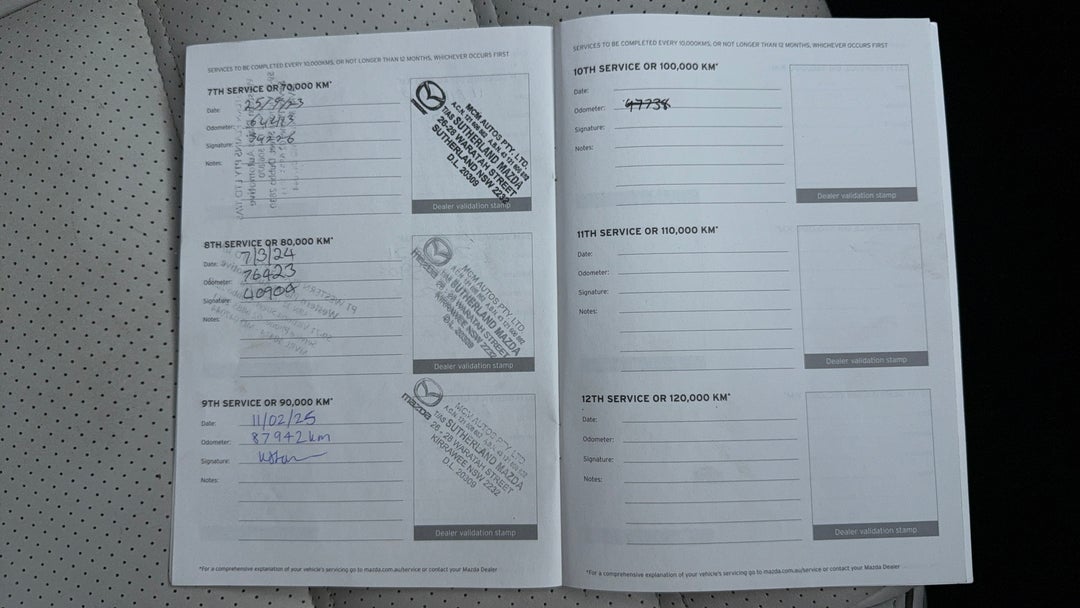 SERVICES TO BE COMPLETED EVERY 10,000KMS, OR NOT LONGER THAN 12 MONTHS, WHICHEVER OCCURS FIRST
7TH SERVICE OR 70,000 KM*
Date: 25/9/23
Odometer:
Signature: 39226
Notes:
MCM AUTOS PTY. LTD.
A.C.N. 121 608 662 A.B.N. 47 121 608 662
T/AS SUTHERLAND MAZDA
26-28 WARATAH STREET
SUTHERLAND NSW 2232
D.L. 20309
Dealer validation stamp
8TH SERVICE OR 80,000 KM*
Date: 7/3/24
Odometer: 76423
Signature: 40904
Notes:
mazda
MCM AUTOS PTY. LTD.
T/AS SUTHERLAND MAZDA
26 - 28 WARATAH STREET
KIRRAWEE NSW 2232
D.L. 20309
Dealer validation stamp
9TH SERVICE OR 90,000 KM*
Date: 11/02/25
Odometer: 87942km
Signature:
Notes:
mazda
MCM AUTOS PTY. LTD.
T/AS SUTHERLAND MAZDA
26 - 28 WARATAH STREET
KIRRAWEE NSW 2232
D.L. 20309
Dealer validation stamp
*For a comprehensive explanation of your vehicle's servicing go to mazda.com.au/service or contact your Mazda Dealer
SERVICES TO BE COMPLETED EVERY 10,000KMS, OR NOT LONGER THAN 12 MONTHS, WHICHEVER OCCURS FIRST
10TH SERVICE OR 100,000 KM*
Date:
Odometer: 97738
Signature:
Notes:
Dealer validation stamp
11TH SERVICE OR 110,000 KM*
Date:
Odometer:
Signature:
Notes:
Dealer validation stamp
12TH SERVICE OR 120,000 KM*
Date:
Odometer:
Signature:
Notes:
Dealer validation stamp
*For a comprehensive explanation of your vehicle's servicing go to mazda.com.au/service or contact your Mazda Dealer